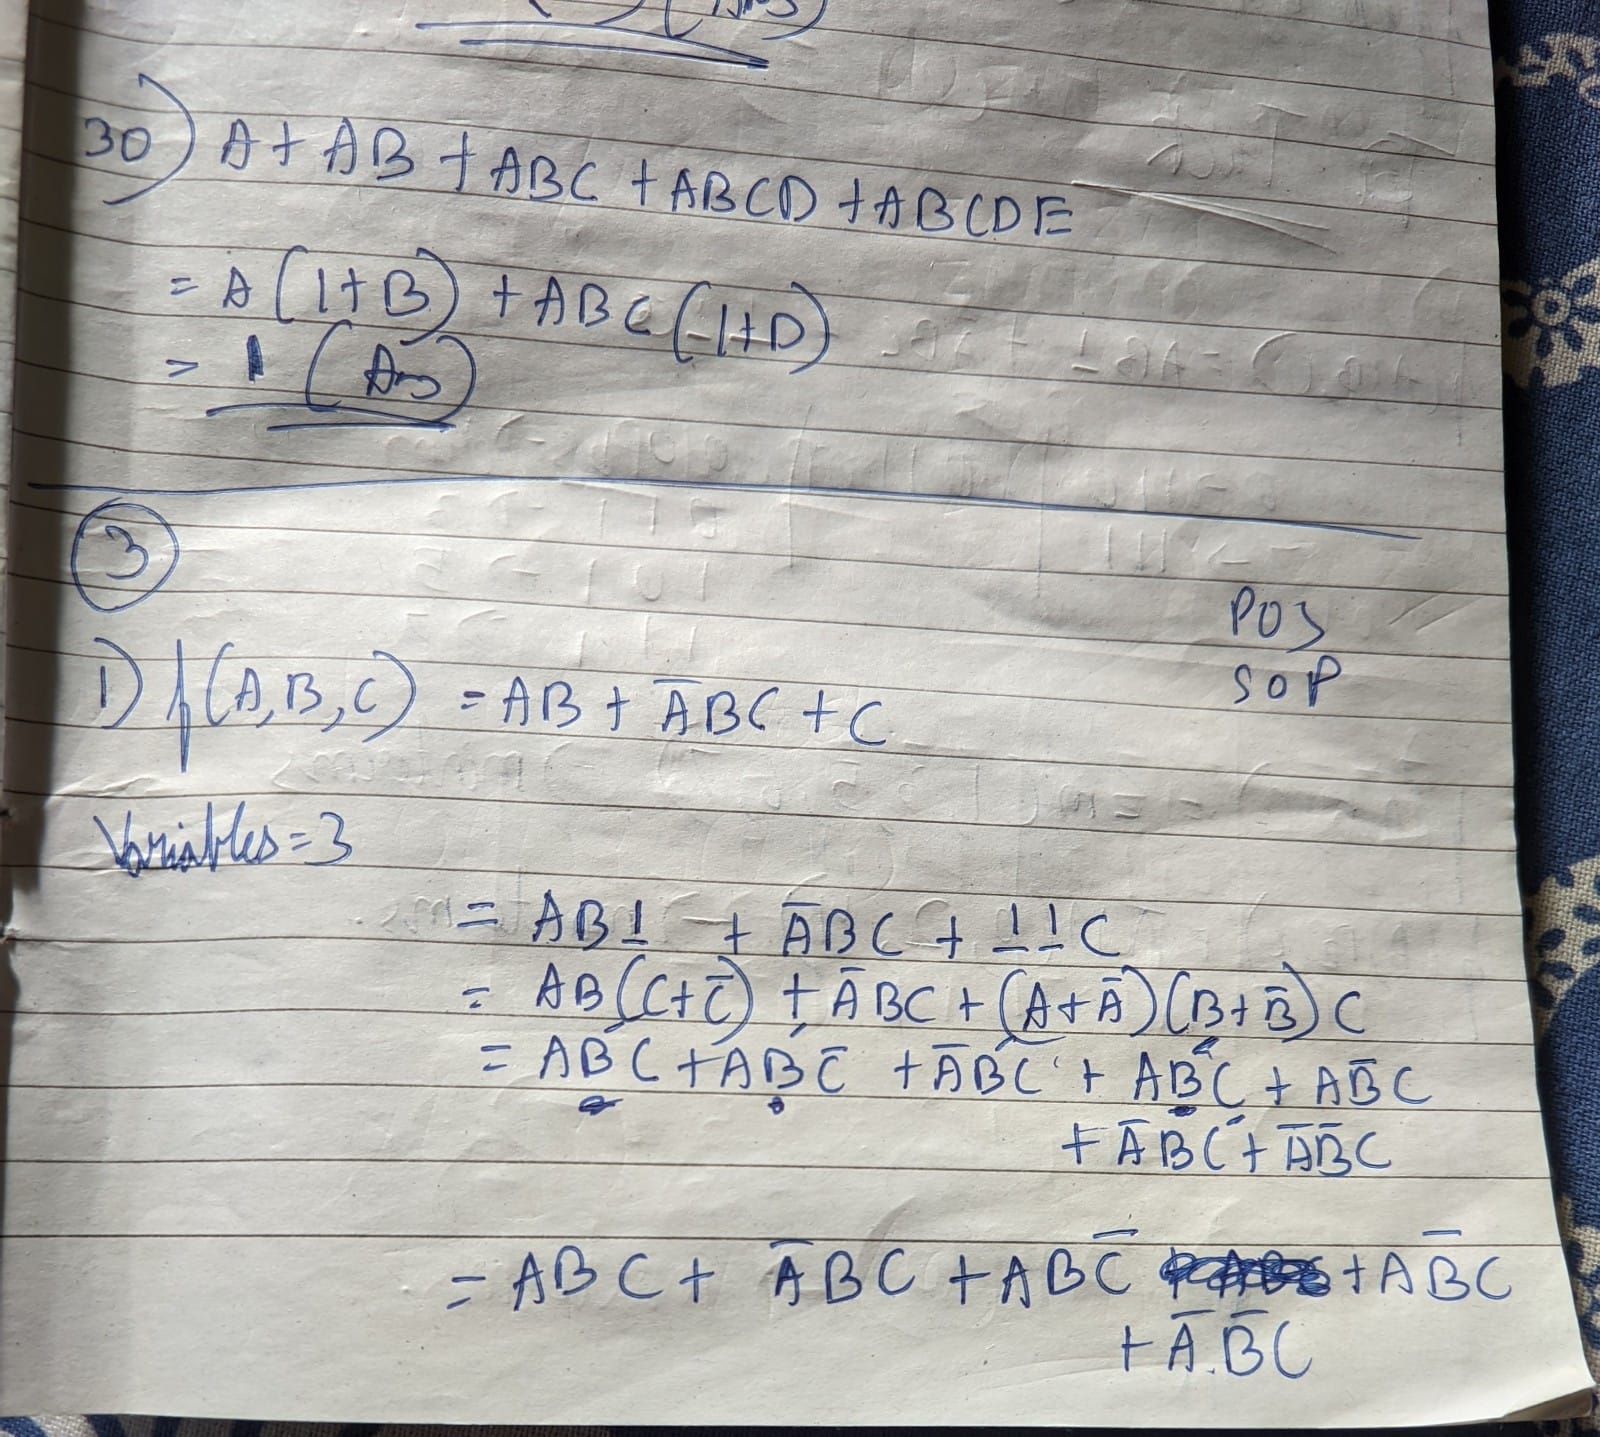 (Ans)
30) A + AB + ABC + ABCD + ABCDE
= A(1+B) + ABC(1+D)
= 1 (Ans)
3
POS
SOP
1) f(A,B,C) = AB + A̅BC + C
Variables = 3
= AB1 + A̅BC + 11C
= AB(C+C̅) + A̅BC + (A+A̅)(B+B̅)C
= ABC + ABC̅ + A̅BC + ABC + AB̅C
+ A̅BC + A̅B̅C
= ABC + A̅BC + ABC̅ + AB̅C
+ A̅.B̅C